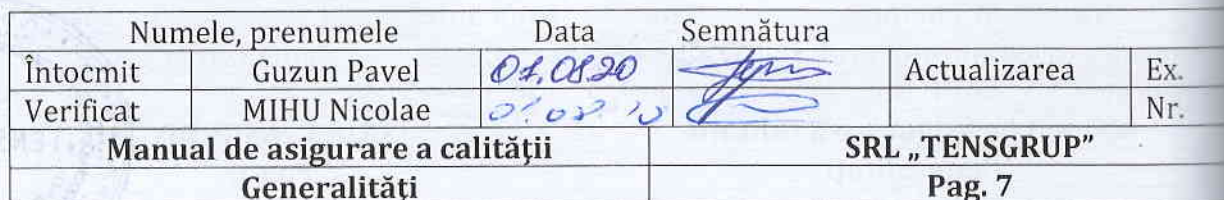 Numele, prenumele Data Semnătura
Întocmit Guzun Pavel Actualizarea Ex.
Verificat MIHU Nicolae Nr.
Manual de asigurare a calității SRL „TENSGRUP”
Generalități Pag. 7